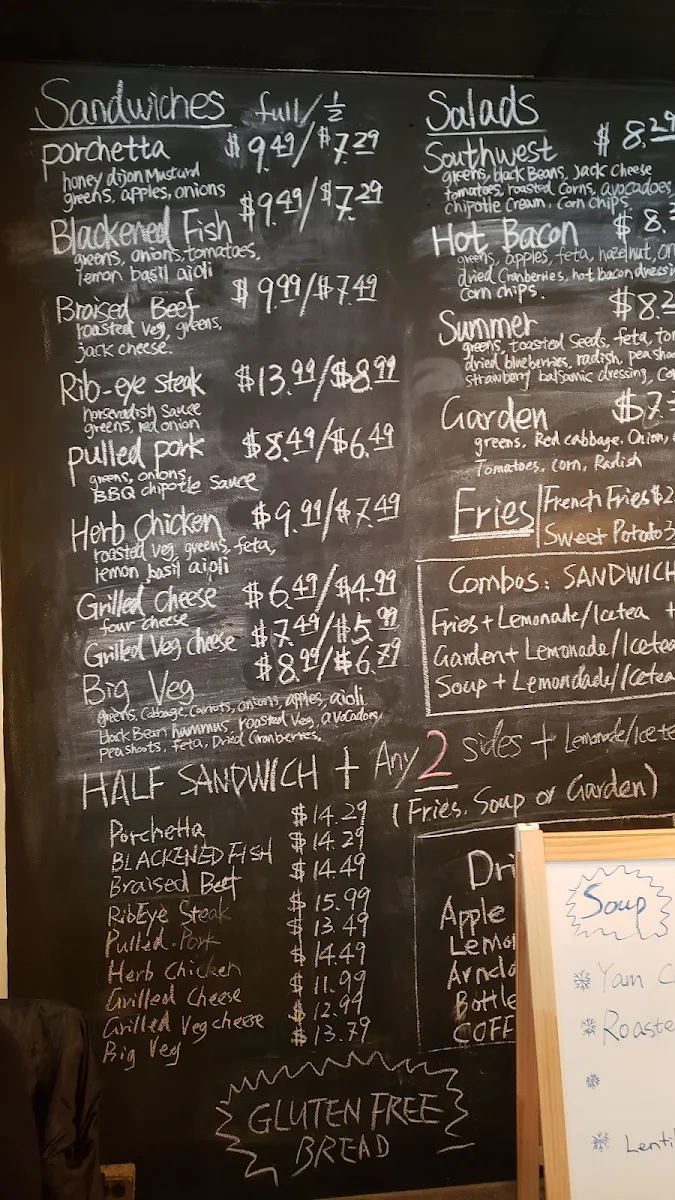 Sandwiches full/½
Porchetta $9.49/$7.29
honey dijon Mustard
greens, apples, onions
Blackened Fish $9.49/$7.29
greens, onions, tomatoes,
lemon basil aioli
Braised Beef $9.99/$7.49
roasted veg, greens,
jack cheese.
Rib-eye steak $13.99/$8.99
horseradish sauce
greens, red onion
pulled pork $8.49/$6.49
greens, onions,
BBQ chipotle sauce
Herb Chicken $9.99/$7.49
roasted veg, greens, feta,
lemon basil aioli
Grilled cheese $6.49/$4.99
four cheese
Grilled Veg cheese $7.49/$5.99
Big Veg $8.99/$6.79
greens, Cabbage, Carrots, onions, apples, aioli
black Bean hummus, roasted veg, avocados,
peashoots, Feta, Dried Cranberries.
Salads
Southwest $8.29
greens, black Beans, Jack cheese
tomatoes, roasted corns, avocadoes,
chipotle cream, corn chips
Hot Bacon $8.
greens, apples, feta, hazelnut,
dried Cranberries, hot bacon
corn chips.
Summer $8.
greens, toasted Seeds, feta,
dried blueberries, radish,
strawberry balsamic dressing,
Garden $7.
greens, Red cabbage, Onion,
Tomatoes, corn, Radish
Fries French Fries $2
Sweet Potato 3
Combos: SANDWICH
Fries + Lemonade/Icetea +
Garden + Lemonade/Icetea
Soup + Lemondade/Icetea
HALF SANDWICH + Any 2 sides + Lemonade/Icetea
(Fries, Soup or Garden)
Porchetta $14.29
BLACKENED FISH $14.29
Braised Beef $14.49
RibEye Steak $15.99
Pulled-Pork $13.49
Herb Chicken $14.49
Grilled Cheese $11.99
Grilled Vegcheese $12.99
Big Veg $13.79
Apple
GLUTEN FREE
BREAD
Soup
Yam